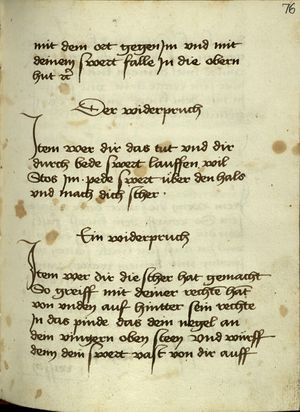 76
mit dem ort gegen Im vnd mit
deinem swert falle In die obern
hut
Der widerpruch
Item wer dir das tut vnd dir
durch bede swert lauffen wil
Stos Im pede swert über den hals
vnd mach dich scher
Ein widerpruch
Item wer dir die scher hat gemacht
So greiff mit deiner rechte hāt
von vnden auf hintter sein rechte
In das pinde das dem negel an
dem vingern oben steen vnd würff
denn dem swert vast von dir auff